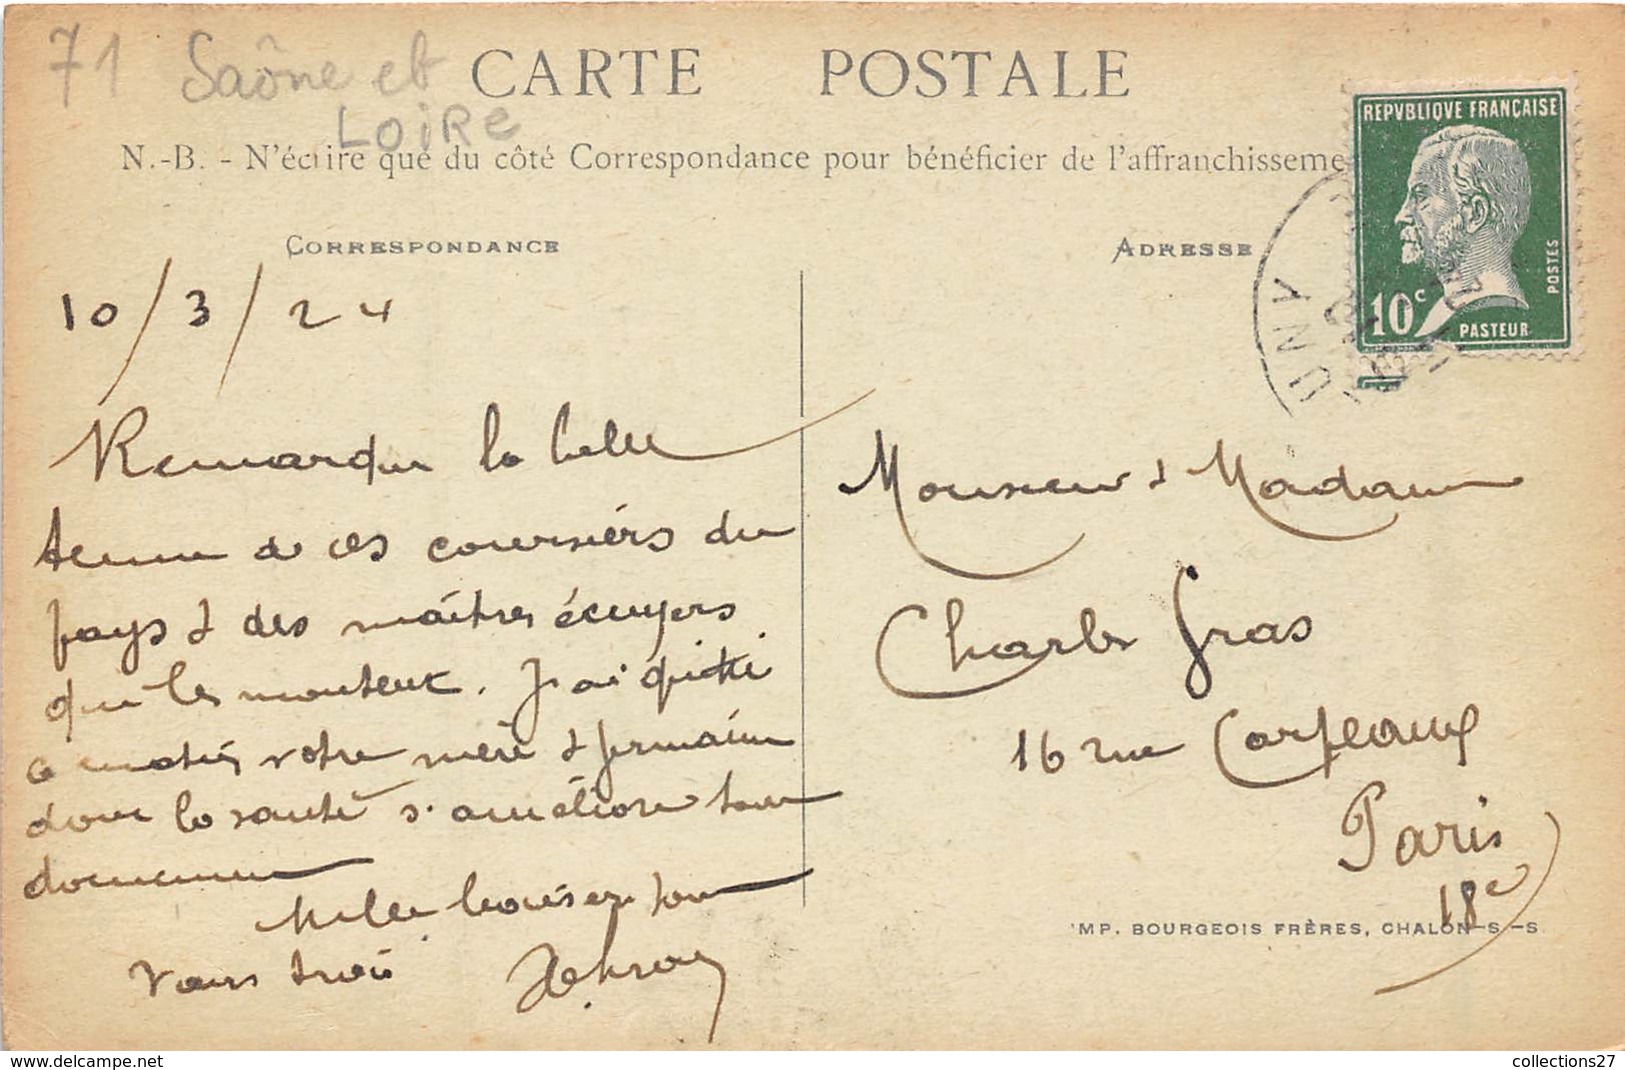 71 Saône et
LOIRE
CARTE POSTALE
N.-B. - N'écrire que du côté Correspondance pour bénéficier de l'affranchisseme
REPVBLIQVE FRANÇAISE
POSTES
10c
PASTEUR
UNY
CORRESPONDANCE
10/3/24
Remarquer la belle
tenue de ces coursiers du
pays & des maîtres écuyers
qui les montent. J'ai quitté
ce matin votre mère & Germaine
dont la santé s'améliore tout
doucement
Mille baisers à tous
vous trois
ADRESSE
Monsieur & Madame
Charles Gras
16 rue Carpeaux
Paris
18e
IMP. BOURGEOIS FRÈRES, CHALON-S.-S
collections27